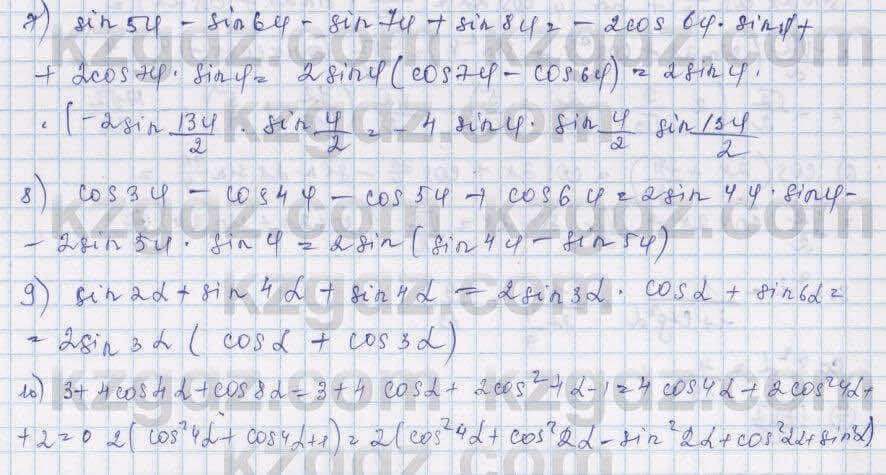 7) sin 5φ - sin 6φ - sin 7φ + sin 8φ = - 2cos 6φ · sin φ +
+ 2cos 7φ · sin φ = 2 sin φ ( cos 7φ - cos 6φ ) = 2 sin φ ·
· ( - 2 sin 13φ/2 · sin φ/2 = - 4 sin φ · sin φ/2 sin 13φ/2
8) cos 3φ - cos 4φ - cos 5φ + cos 6φ = 2 sin 4φ · sin φ -
- 2 sin 5φ · sin φ = 2 sin ( sin 4φ - sin 5φ )
9) sin 2α + sin 4α + sin 4α = 2 sin 3α · cos α + sin 6α =
= 2 sin 3α ( cos α + cos 3α )
10) 3 + 4 cos 4α + cos 8α = 3 + 4 cos α + 2cos² 4α - 1 = 4 cos 4α + 2 cos² 4α +
+ 2 = 0 2 ( cos² 4α + cos 4α + 1 ) = 2 ( cos² 4α + cos² 2α - sin² 2α + cos² 2α + sin² α )
kzgdz.com